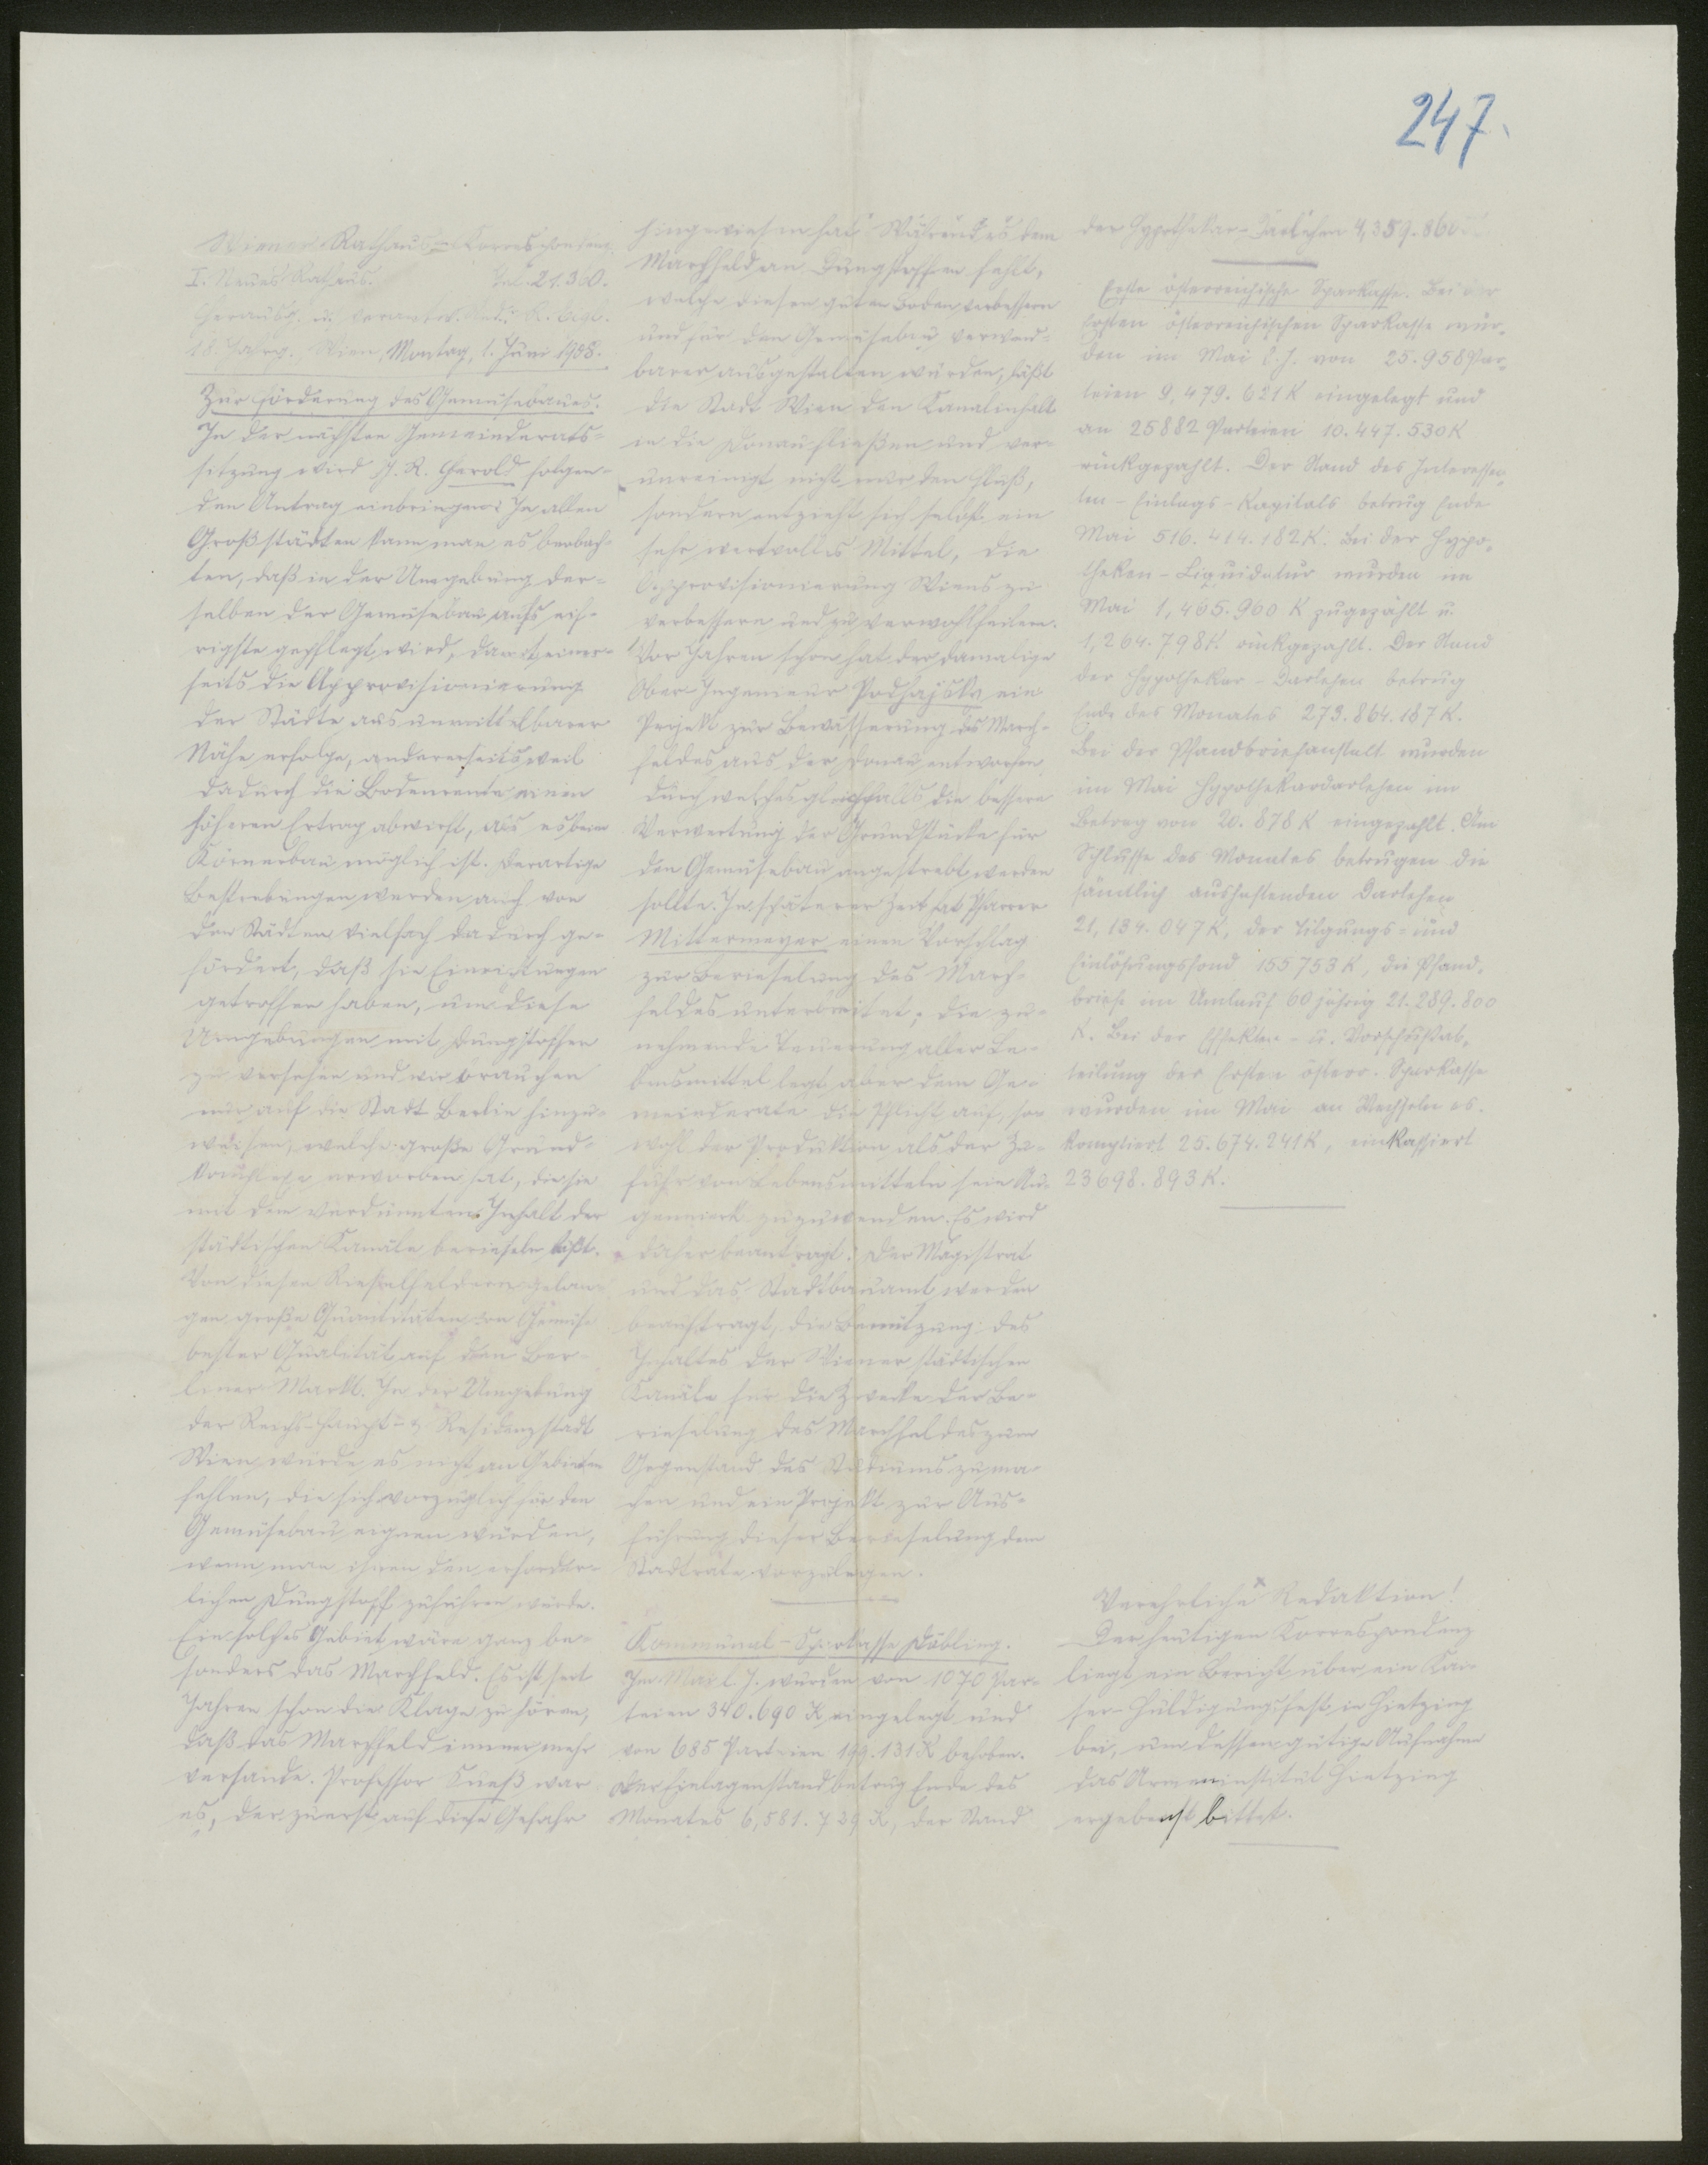 247.
Wiener Rathaus-Korrespondenz
I. Neues Rathaus. Tel. 21.360.
Herausg. u. verantw. Red. R.
18. Jahrg. Wien, Montag, 1. Juni 1908.
Zur Förderung des Gemüsebaues.
In der nächsten Gemeinderats-
sitzung wird G. R. Gerold folgen-
den Antrag einbringen: In allen
Großstädten kann man es beobach-
ten, daß in der Umgebung der-
selben der Gemüsebau aufs eif-
rigste gepflegt wird, damit einer-
seits die Approvisionierung
der Städte aus unmittelbarer
Nähe erfolge, andererseits weil
dadurch die Bodenrente einen
höheren Ertrag abwirft, als es beim
Körnerbau möglich ist. Derartige
Bestrebungen werden auch von
den Städten vielfach dadurch ge-
fördert, daß sie Einrichtungen
getroffen haben, um diese
Umgebungen mit Dungstoffen
zu versehen und wir brauchen
nur auf die Stadt Berlin hinzu-
weisen, welche große Grund-
komplexe erworben hat, die sie
mit dem verdünnten Inhalt der
städtischen Kanäle berieseln läßt.
Von diesen Rieselfeldern gelan-
gen große Quantitäten von Gemüse
bester Qualität auf den Ber-
liner Markt. In der Umgebung
der Reichs-Haupt- u. Residenzstadt
Wien würde es nicht an Gebieten
fehlen, die sich vorzüglich für den
Gemüsebau eignen würden,
wenn man ihnen den erforder-
lichen Dungstoff zuführen würde.
Ein solches Gebiet wäre ganz be-
sonders das Marchfeld. Es ist seit
Jahren schon die Klage zu hören,
daß das Marchfeld immer mehr
versande. Professor Sueß war
es, der zuerst auf diese Gefahr
hingewiesen hat. Während es dem
Marchfeld an Dungstoffen fehlt,
welche diesen guten Boden verbessern
und für den Gemüsebau verwend-
barer ausgestalten würden, läßt
die Stadt Wien den Kanalinhalt
in die Donau fließen und ver-
unreinigt nicht nur den Fluß,
sondern entzieht sich selbst ein
sehr wertvolles Mittel, die
Approvisionierung Wiens zu
verbessern und zu verwohlfeilern.
Vor Jahren schon hat der damalige
Ober-Ingenieur Podhajsky ein
Projekt zur Bewässerung des March-
feldes aus der Donau entworfen,
durch welches gleichfalls die bessere
Verwertung der Grundstücke für
den Gemüsebau angestrebt werden
sollte. In späterer Zeit hat Pfarrer
Mittermeyer einen Vorschlag
zur Berieselung des March-
feldes unterbreitet; die zu-
nehmende Teuerung aller Le-
bensmittel legt aber dem Ge-
meinderate die Pflicht auf, so-
wohl der Produktion als der Zu-
fuhr von Lebensmitteln sein Au-
genmerk zuzuwenden. Es wird
daher beantragt: Der Magistrat
und das Stadtbauamt werden
beauftragt, die Benützung des
Inhaltes der Wiener städtischen
Kanäle für die Zwecke der Be-
rieselung des Marchfeldes zum
Gegenstand des Studiums zu ma-
chen und ein Projekt zur Aus-
führung dieser Berieselung dem
Stadtrate vorzulegen.
Kommunal-Sparkasse Döbling.
Im Mai l. J. wurden von 1070 Par-
teien 340.690 K eingelegt und
von 685 Parteien 199.131 K behoben.
Der Einlagenstand betrug Ende des
Monates 6,581.739 K, der Stand
der Hypothekar-Darlehen 4,359.860
Erste österreichische Sparkasse. Bei der
Ersten österreichischen Sparkasse wur-
den im Mai l. J. von 25.958 Par-
teien 9,479.621 K eingelegt und
an 25882 Parteien 10.447.530 K
rückgezahlt. Der Stand des Interessen-
ten-Einlags-Kapitals betrug Ende
Mai 516.414.182 K. Bei der Hypo-
theken-Liquidatur wurden im
Mai 1,405.960 K zugezählt u.
1,264.798 K rückgezahlt. Der Stand
der Hypothekar-Darlehen betrug
Ende des Monates 273.864.187 K.
Bei der Pfandbriefanstalt wurden
im Mai Hypothekardarlehen im
Betrag von 20.878 K eingezahlt. Am
Schlusse des Monates betrugen die
sämtlich aushaftenden Darlehen
21,134.047 K, der Tilgungs- und
Einlösungsfond 155753 K, die Pfand-
briefe im Umlauf 60 jährig 21.289.800
K. Bei der Effekten- u. Vorschußab-
teilung der Ersten österr. Sparkasse
wurden im Mai an Wechseln es-
komptiert 25.674.241 K, einkassiert
23698.893 K.
Verehrliche Redaktion!
Der heutigen Korrespondenz
liegt ein Bericht über ein Kai-
ser-Huldigungsfest in Hietzing
bei, um dessen gütige Aufnahme
das Armeninstitut Hietzing
ergebenst bittet.